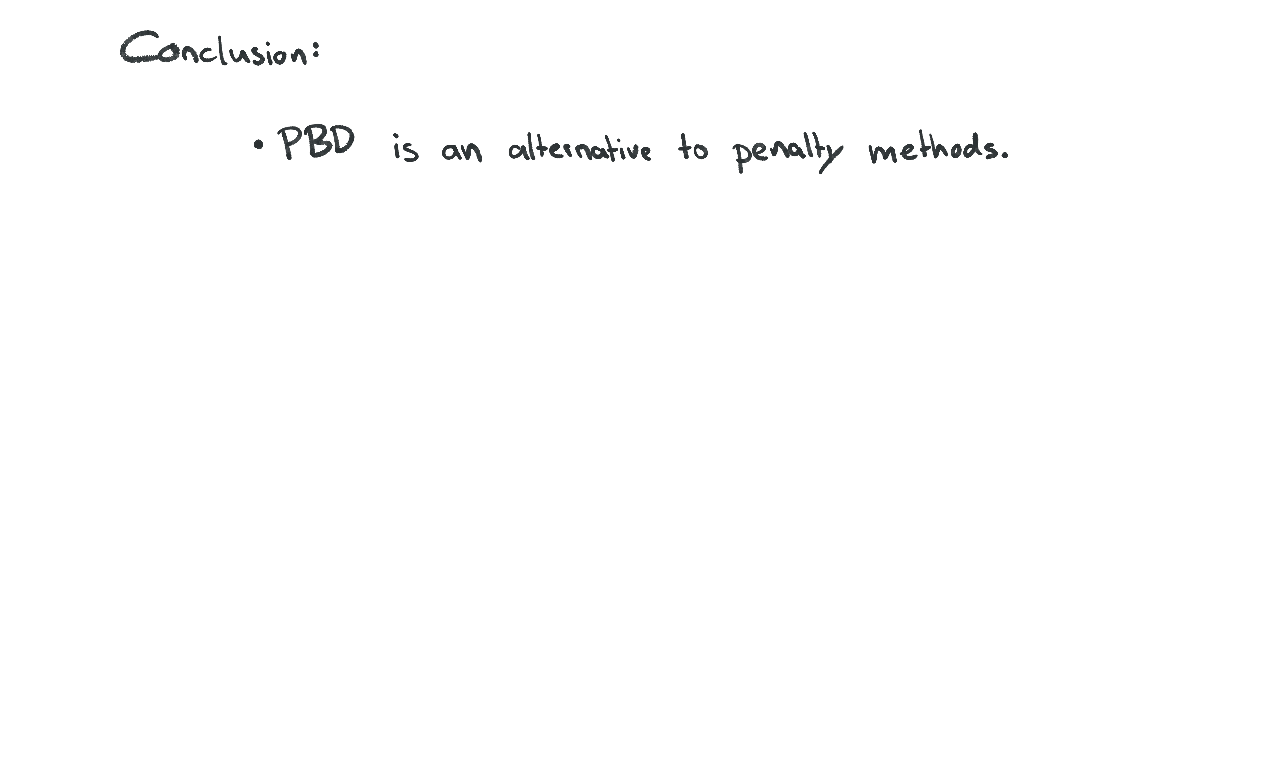 Conclusion:
• PBD is an alternative to penalty methods.